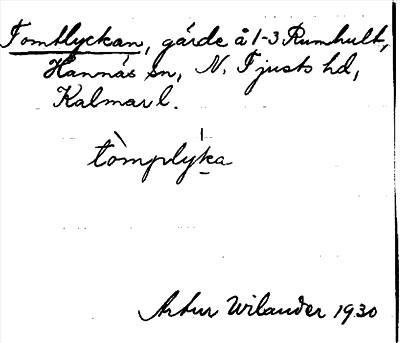 Tomtlyckan, gärde å 1-3 Rumhult,
Hannäs sn, N. Tjusts hd,
Kalmar l.
tòmplýka
Artur Wilander 1930